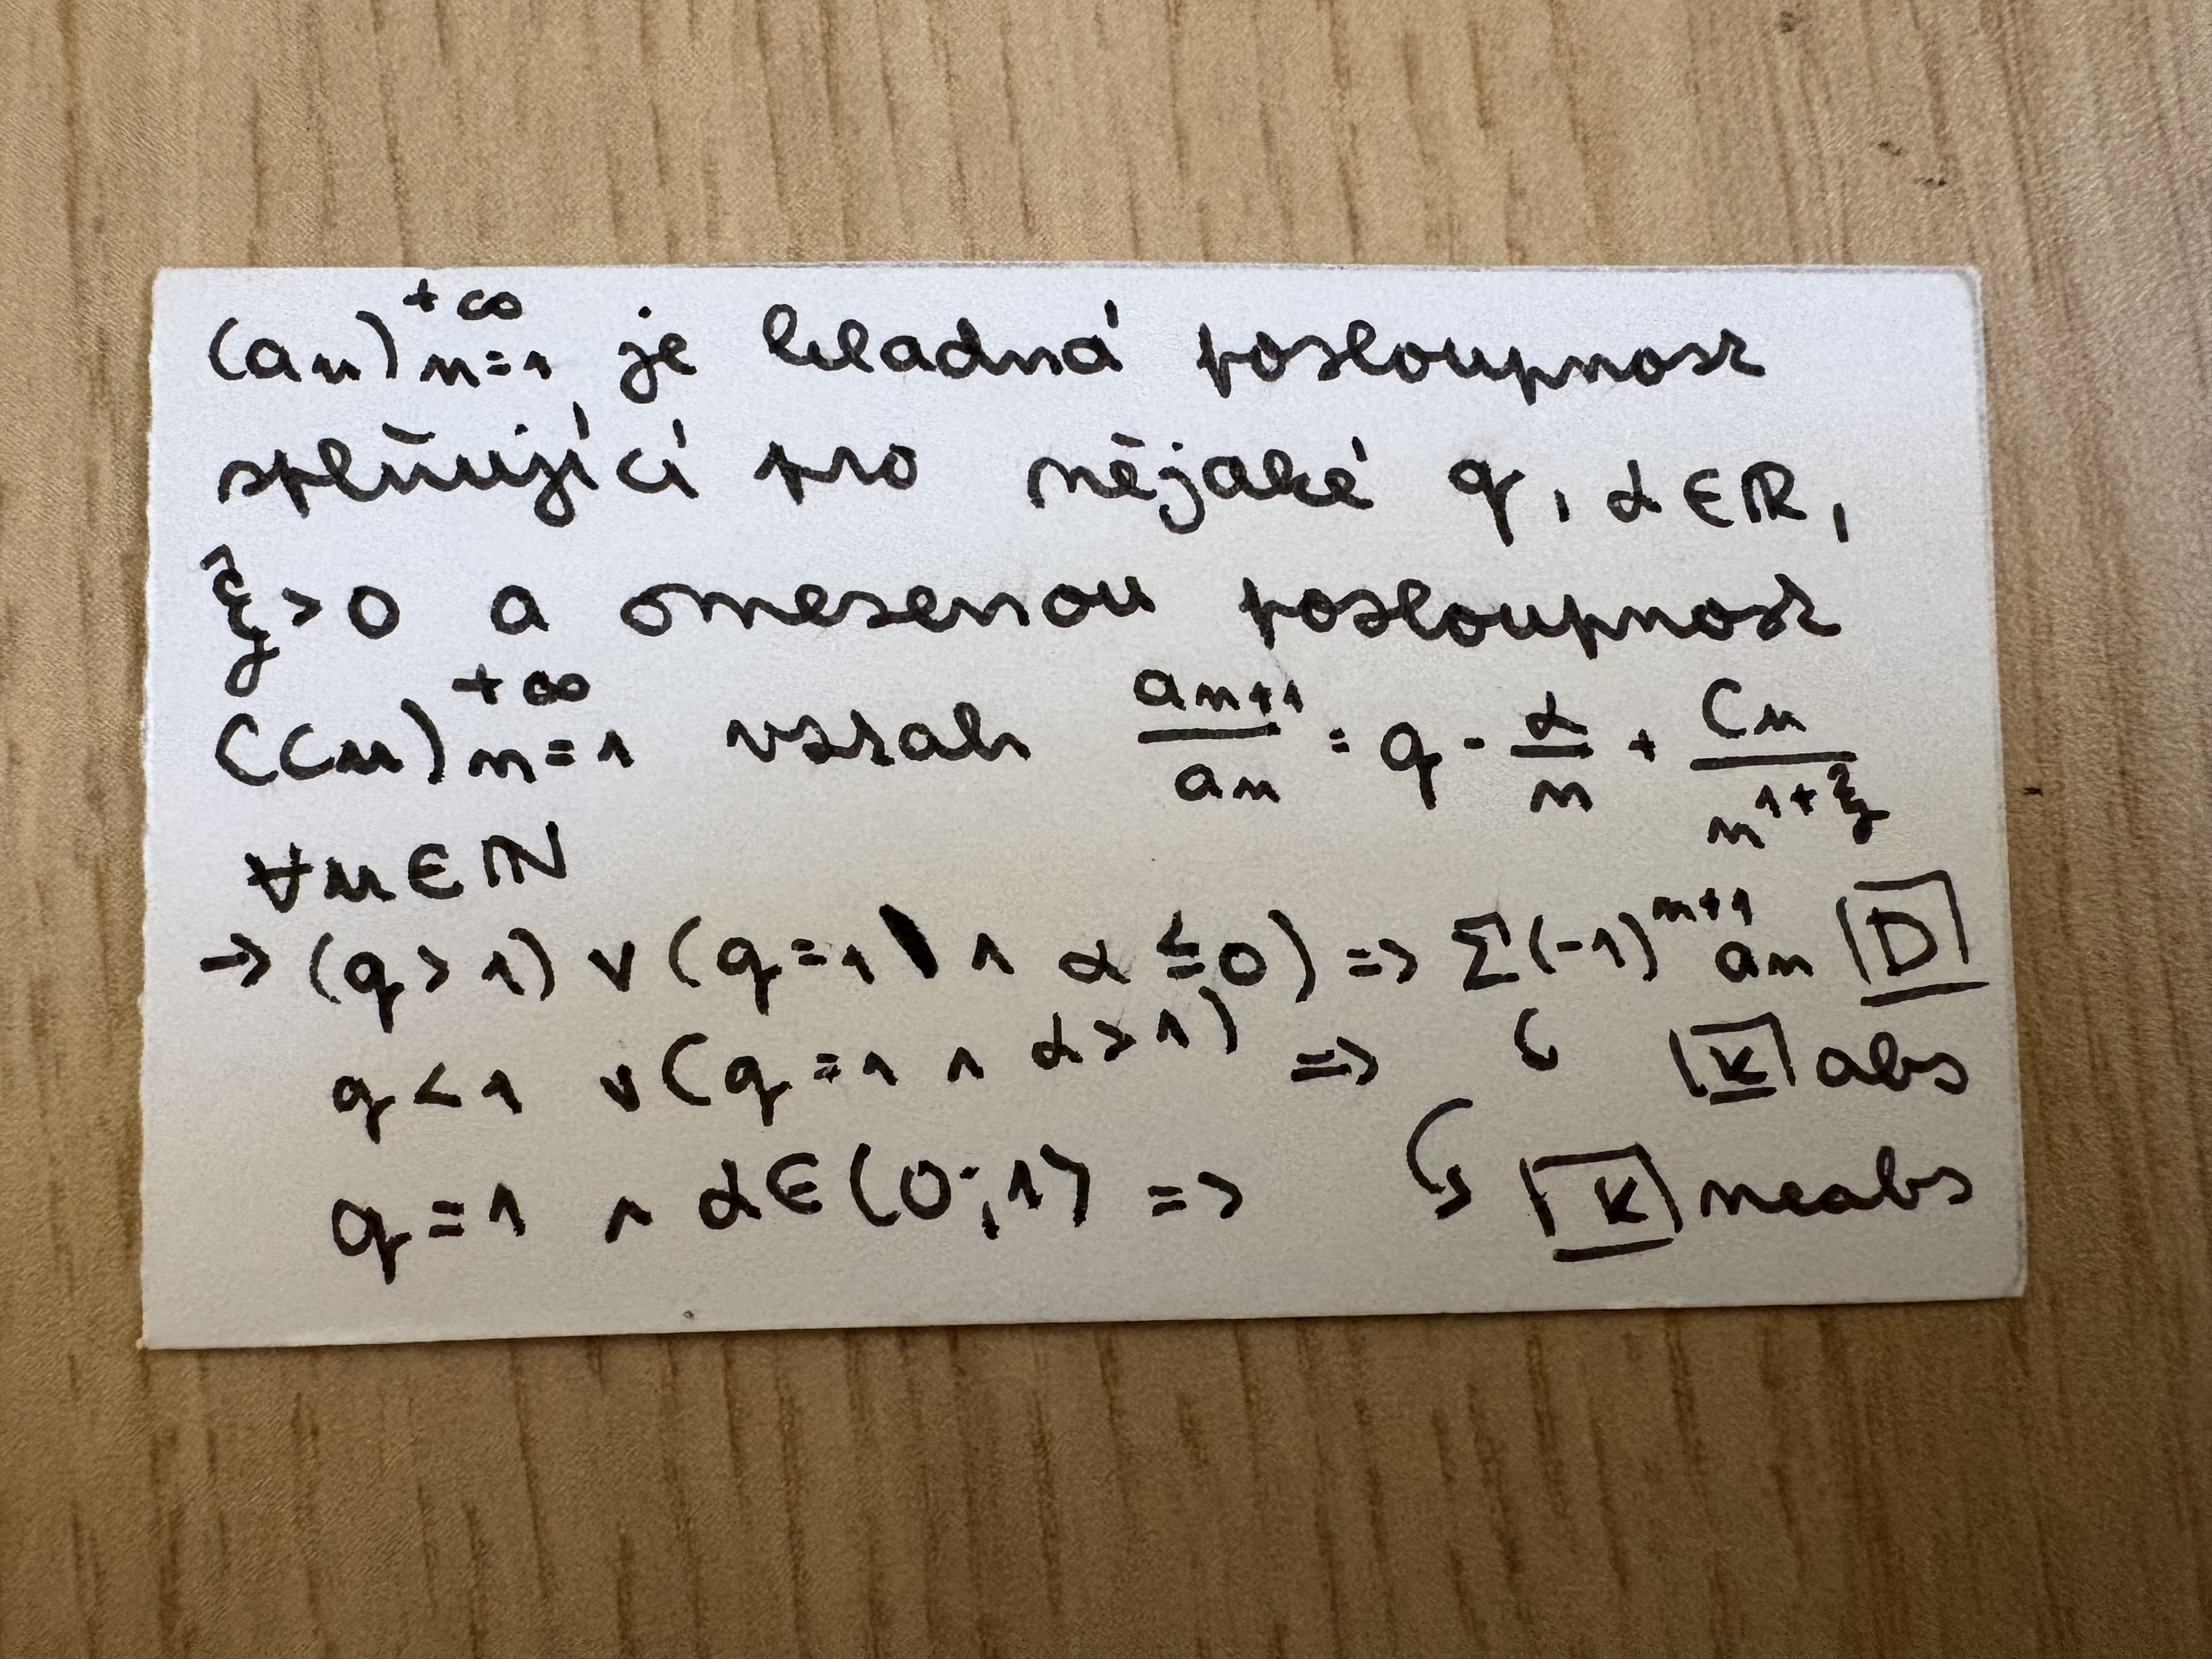 (an)n=1^+∞ je kladná posloupnost
splňující pro nějaké q, α∈ℝ,
ξ>0 a omezenou posloupnost
(Cn)n=1^+∞ vztah an+1/an = q - α/n + Cn/n^1+ξ
∀n∈ℕ
→ (q>1) ∨ (q=1 ∧ α≤0) => Σ(-1)^n+1 an D
q<1 ∨ (q=1 ∧ α>1) => K abs
q=1 ∧ α∈(0;1⟩ => ↳ K neabs